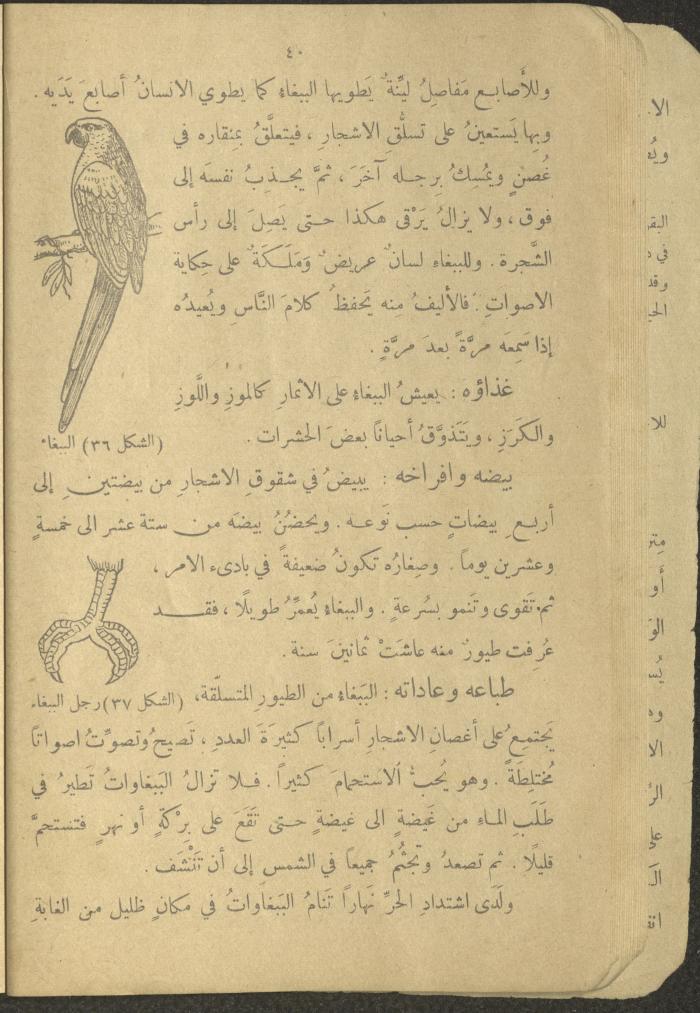 ٤٠
وللأصابع مَفاصِلُ ليِّنةٌ يَطويها الببغاء كما يطوي الانسانُ أصابعَ يَدَيه .
وبها يَستعينُ على تسلُّق الاشجار ، فيتعلَّقُ بمنقاره في
غُصنٍ ويمُسكُ برجله آخَرَ ، ثمَّ يجذِبُ نفسَه إلى
فوق ، ولا يزالُ يَرْقى هكذا حتى يَصِلَ إلى رأس
الشَّجرة . وللببغاءِ لسانٌ عريضٌ وَمَلَكَةٌ على حِكاية
الاصواتِ . فالأليفُ منه يَحفظُ كلامَ النَّاسِ ويُعيدُه
إذا سَمِعَه مرَّةً بعدَ مرَّةٍ .
غذاؤه : يعيشُ الببغاء على الاثمارِ كالموزِ واللَّوزِ
والكَرَزِ ، ويَتَذوَّقُ أحياناً بعضَ الحشرات .
(الشكل ٣٦) الببغاء
بيضه وافراخه : يبيضُ في شقوقِ الاشجارِ من بيضتينِ إلى
أربعِ بيضاتٍ حسب نَوعه . ويحضُنُ بيضَه من ستة عشر الى خمسةٍ
وعشرين يوماً . وصِغارُه تكونُ ضعيفةً في بادىء الامر ،
ثم تَقوى وتَنمو بسُرعةٍ . والببغاء يُعمَّرُ طويلًا ، فقد
عُرِفت طيورٌ منه عاشَتْ ثمانينَ سنة .
طباعه وعاداته : البَبغاء من الطيورِ المتسلّقة ،
(الشكل ٣٧) رجل الببغاء
يَجتمعُ على أغصانِ الاشجارِ أسراباً كثيرَةَ العددِ ، تَصيحُ وتصوِّتُ اصواتاً
مُختلِطَةً . وهو يُحِبُّ الاستحمامَ كثيراً . فلا تزالُ البَبغاواتُ تَطيرُ في
طَلَبِ الماءِ من غَيضةٍ الى غيضةٍ حتى تَقَعَ على بِرْكةٍ أو نهرٍ فتستحمَّ
قليلًا . ثم تصعدُ وتجثُمُ جميعاً في الشمسِ إلى أن تَنْشَف .
ولَدَى اشتدادِ الحرِّ نهاراً تَنامُ البَبغاواتُ في مكانٍ ظليل من الغابةِ